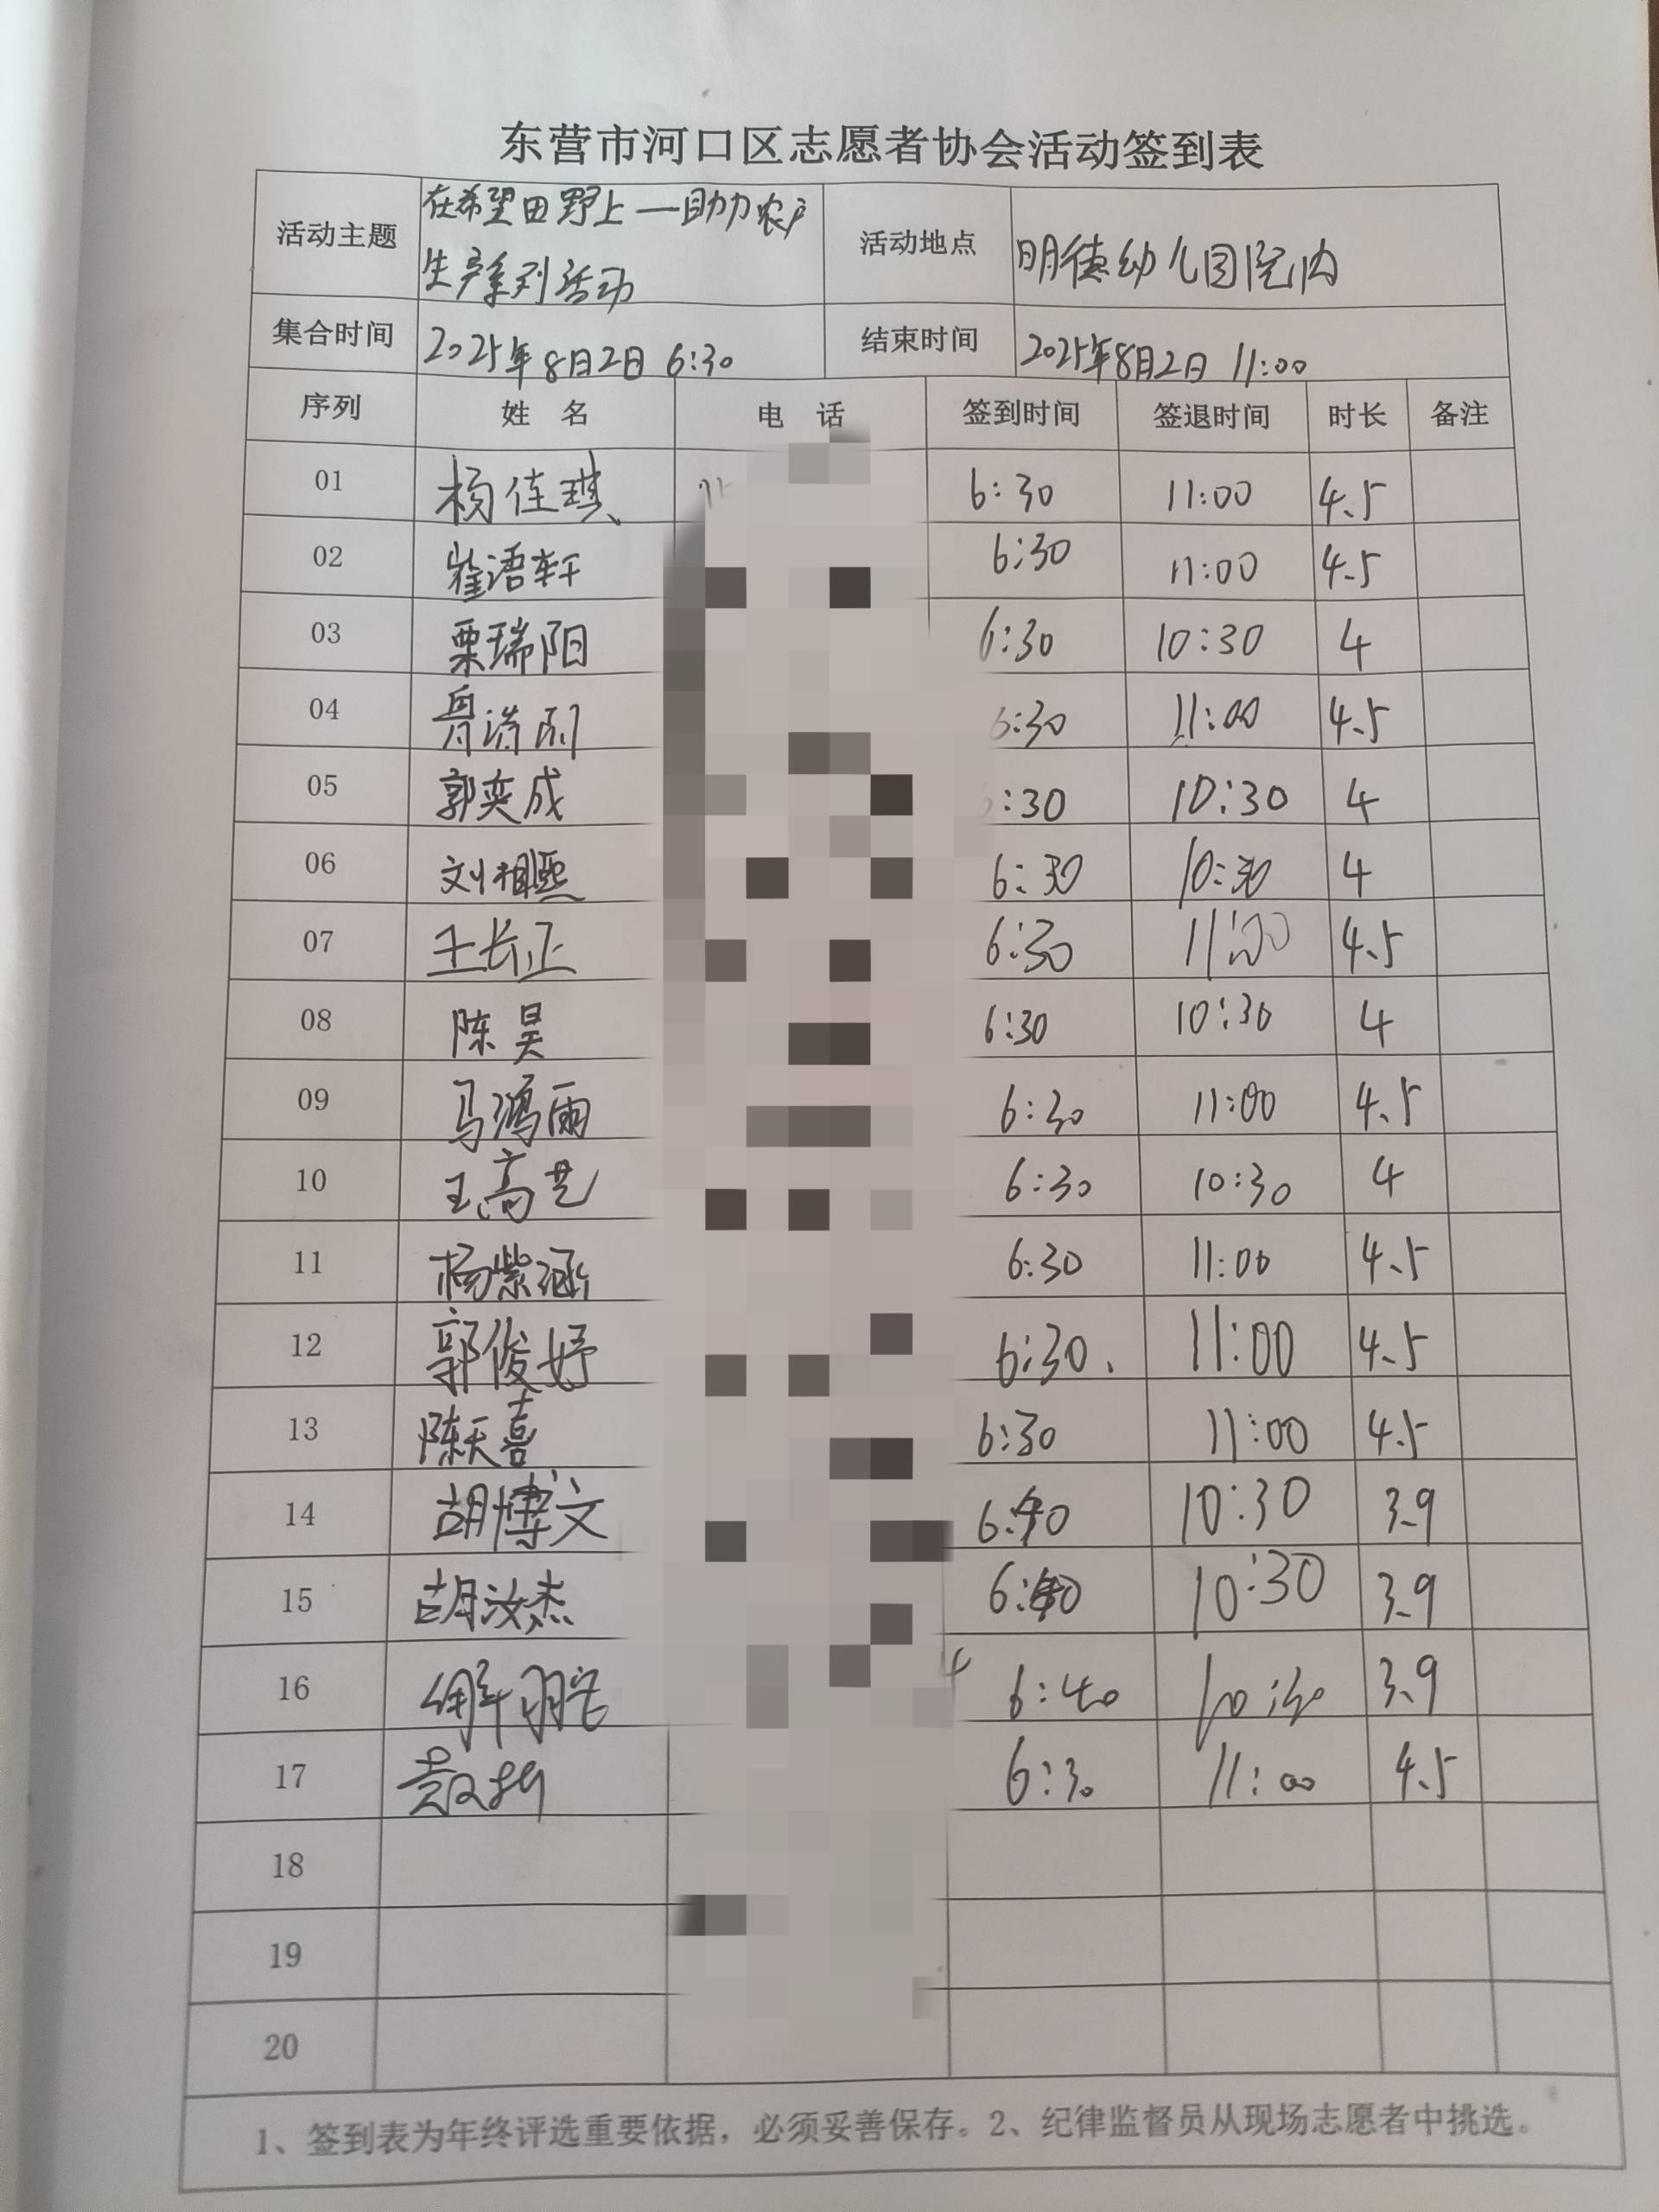 东营市河口区志愿者协会活动签到表
活动主题 在希望田野上——助力农户生产系列活动 活动地点 明德幼儿园院内
集合时间 2025年8月2日 6:30 结束时间 2025年8月2日 11:00
序列 姓 名 电 话 签到时间 签退时间 时长 备注
01 杨佳琪 6:30 11:00 4.5
02 崔语轩 6:30 11:00 4.5
03 栗瑞阳 6:30 10:30 4
04 6:30 11:00 4.5
05 郭奕成 :30 10:30 4
06 刘相熙 6:30 10:30 4
07 王长正 6:30 11:00 4.5
08 陈昊 6:30 10:30 4
09 马鸿雨 6:30 11:00 4.5
10 王高艺 6:30 10:30 4
11 杨紫涵 6:30 11:00 4.5
12 郭俊妤 6:30. 11:00 4.5
13 陈天喜 6:30 11:00 4.5
14 胡博文 6:40 10:30 3.9
15 胡汝杰 6:40 10:30 3.9
16 6:40 10:30 3.9
17 6:30 11:00 4.5
18
19
20
1、签到表为年终评选重要依据，必须妥善保存。2、纪律监督员从现场志愿者中挑选。